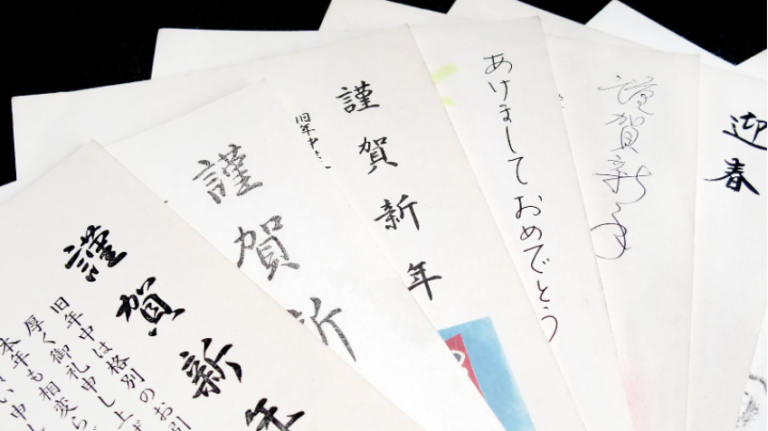 迎春
謹賀新年
あけましておめでとう
謹賀新年
旧年中
謹賀新
謹賀新年
旧年中は格別のお引
厚く御礼申し上げ
本年も相変ら
い申し